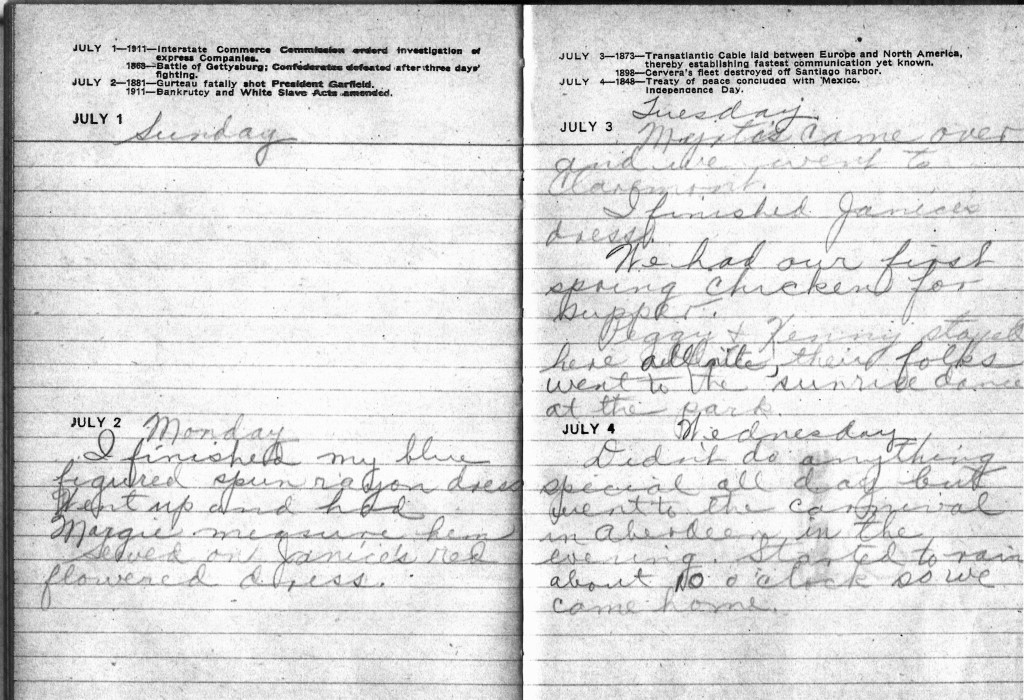 JULY 1—1911—Interstate Commerce Commission orderd investigation of
express Companies.
1863—Battle of Gettysburg; Confederates defeated after three days'
fighting.
JULY 2—1881—Gurteau fatally shot President Garfield.
1911—Bankrutcy and White Slave Acts amended.
JULY 1
Sunday
JULY 2 Monday
I finished my blue
figured spun rayon dress
Went up and had
Margie measure hem
Sewed on Janice's red
flowered dress.
JULY 3—1873—Transatlantic Cable laid between Europe and North America,
thereby establishing fastest communication yet known.
1898—Cervera's fleet destroyed off Santiago harbor.
JULY 4—1848—Treaty of peace concluded with Mexico.
Independence Day.
Tuesday
JULY 3 came over
and we went to
Claremont.
I finished Janice's
dress.
We had our first
spring chicken for
supper.
Peggy & Kenny stayed
here all nite, their folks
went to the sunrise dance
at the park.
JULY 4 Wednesday
Didn't do anything
special all day but
went to the carnival
in Aberdeen in the
evening. Started to rain
about 10 o'clock so we
came home.